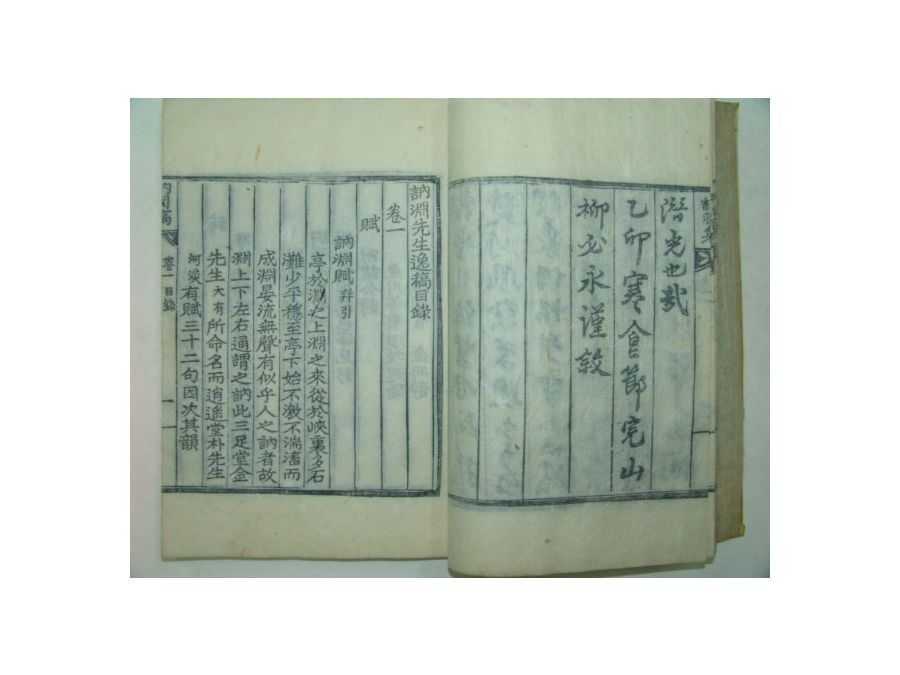 潛光也哉
乙卯寒食節完山
柳必永謹敍
訥淵先生逸稿目錄
卷一
賦
訥淵賦 幷引
亭於淵之上淵之來從於峽裏多石
灘少平穩至亭下始不激不湍滀而
成淵晏流無聲有似乎人之訥者故
淵上下左右通謂之訥此三足堂金
先生大有所命名而逍遙堂朴先生
河淡有賦三十二句因次其韻
卷一目錄
一